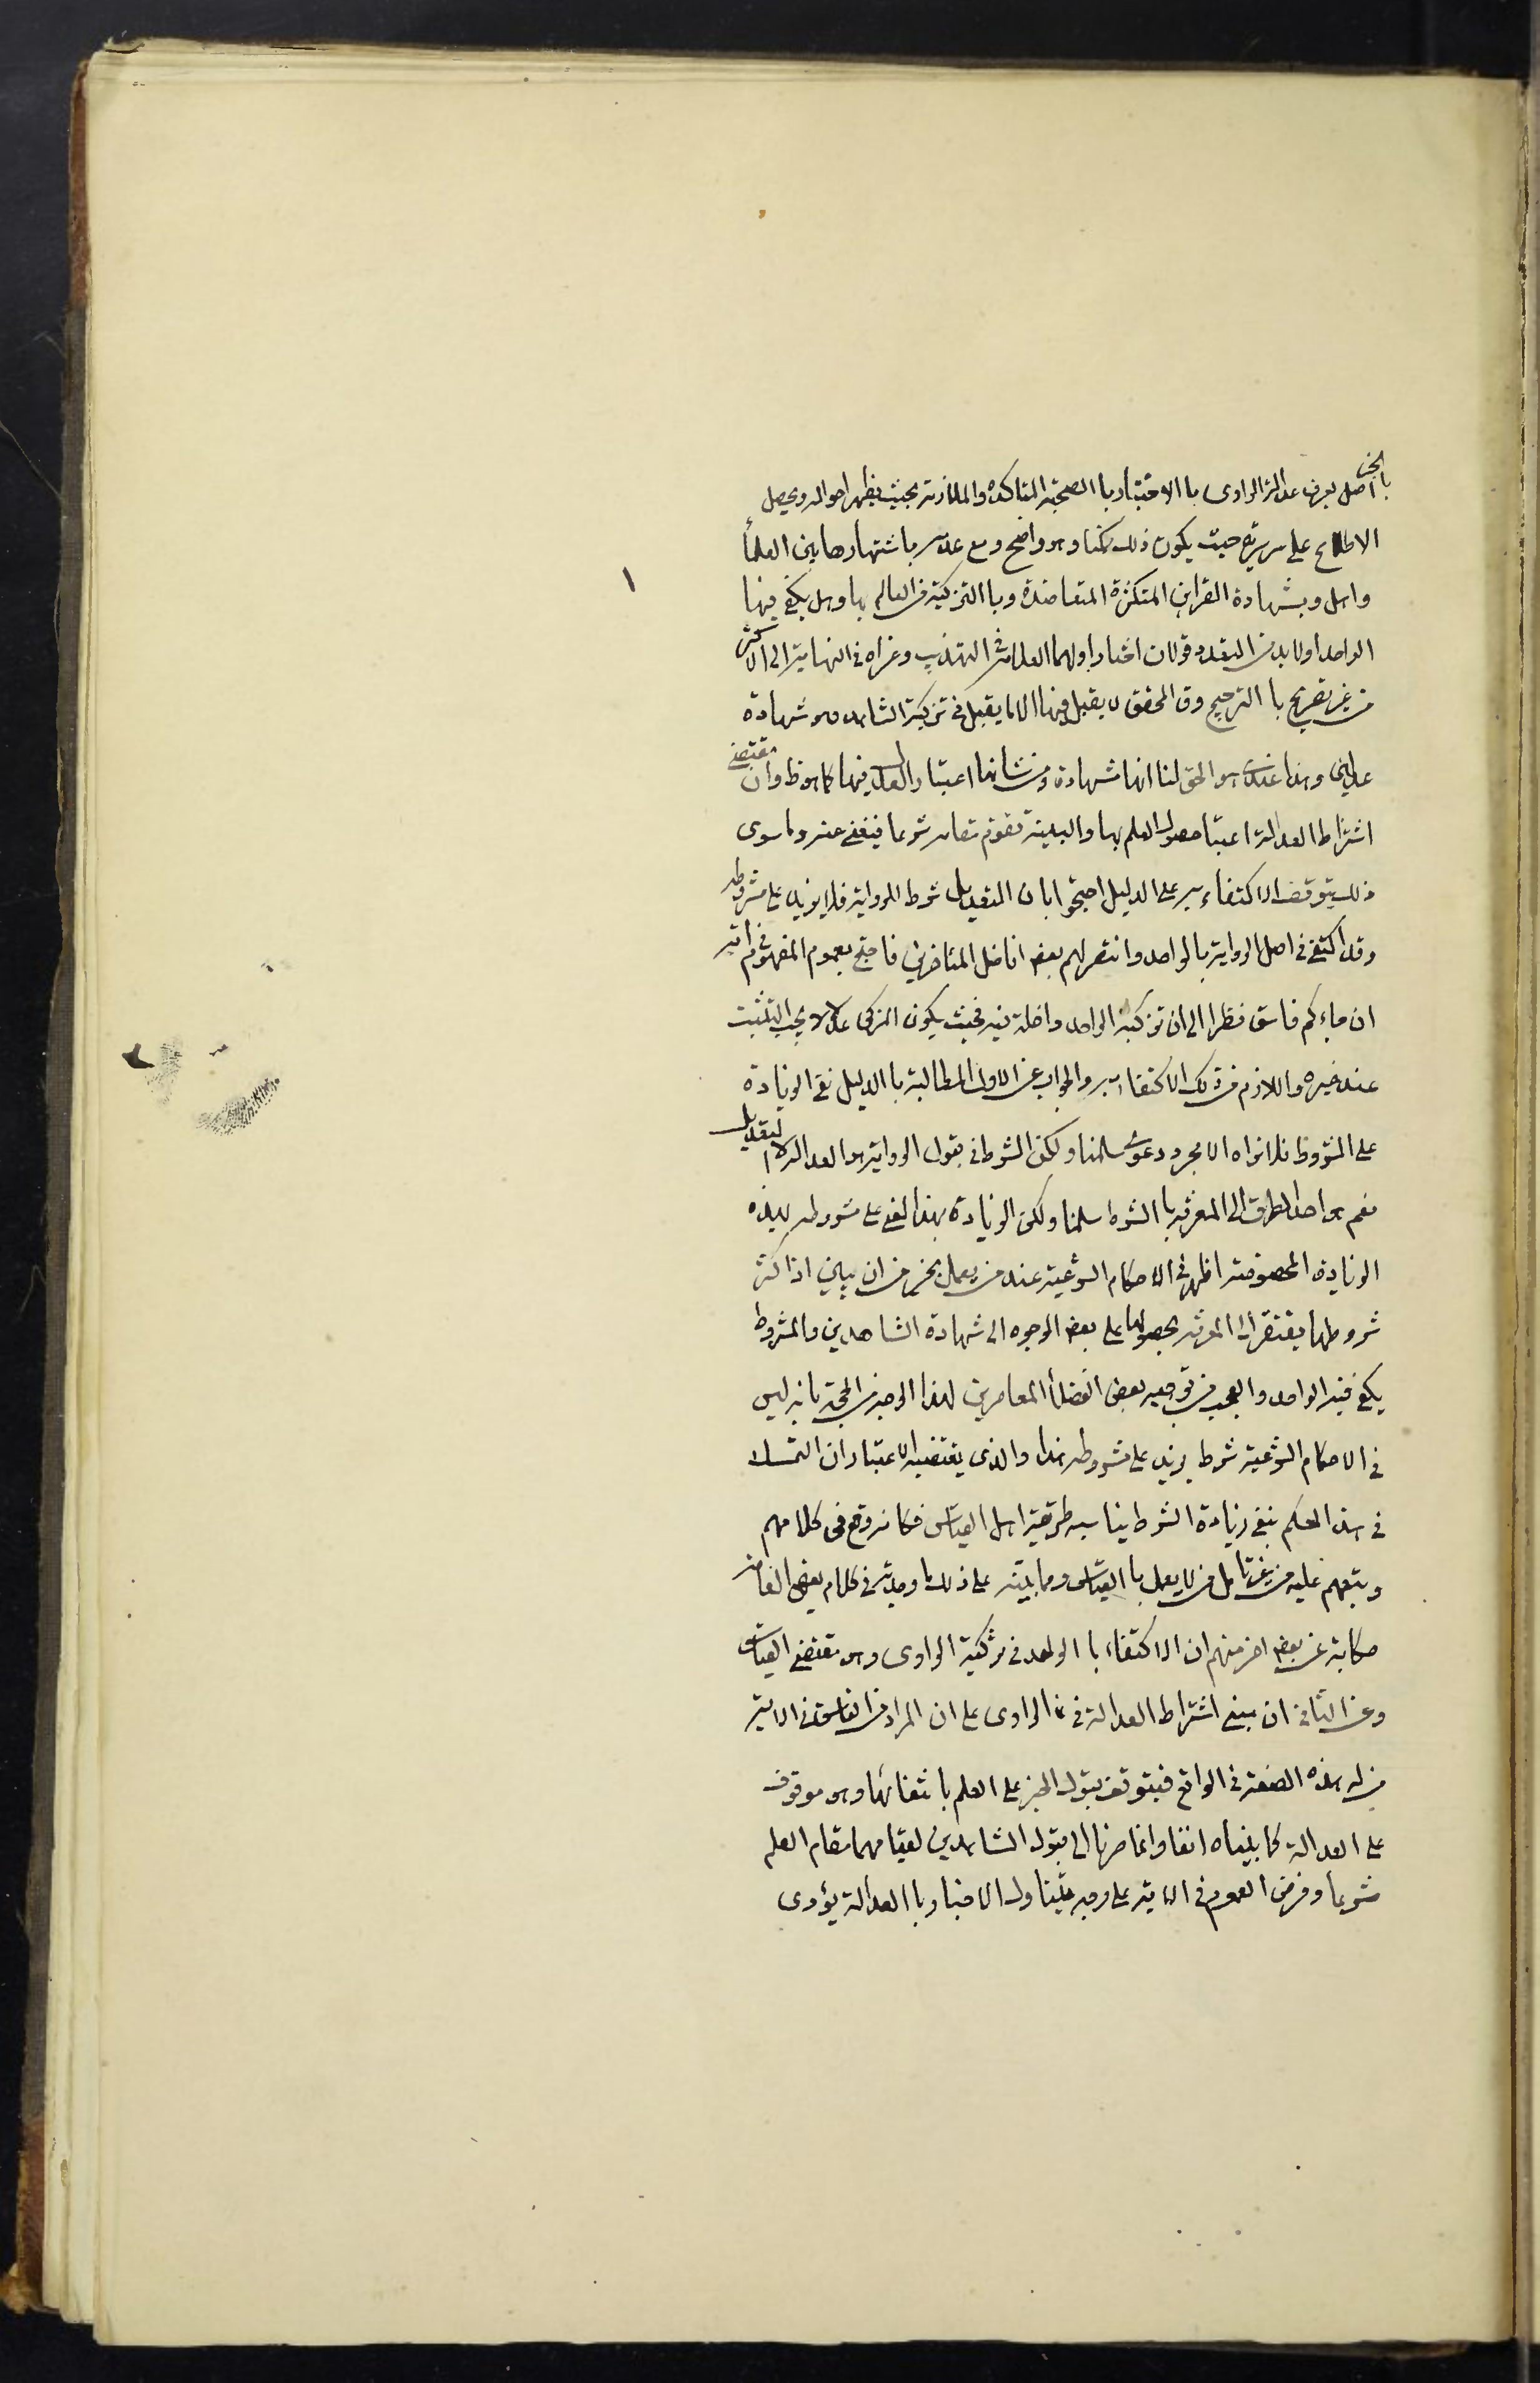 بالخبر
اصل يعرف عدالة الراوى باالاختبار باالصحبة المتاكدة والملازمة بحيث يظهر احواله ويحصل
الاطلاع على سريرته حيث يكون ذلك ممكنا وهو واضح ومع عدمه باشتهارها بين العلمأ
واهل وبشهادة القراين المتكثرة المتعاضدة وباالتزكية من العالم بها وهل يكفى فيها
١
الواحد اولا بد من التعدد قولان اختار اولهما العلامة فى التهذيب وعزاه فى النهاية الى الاكثر
من غير تصريح باالترجيح وق المحقق لا يقبل فيها الا ما يقبل فى تزكية الشاهد وهو شهادة
عدلين وهذا عندى هو الحق لنا انها شهادة ومن شانها اعتبار العدد فيها كما هو ظ وان مقتضى
اشتراط العدالة اعتبا حصول العلم بها والبينة تقوم مقامه شرعا فيغنى عنه وما سوى
ذلك يتوقف الاكتفاء به على الدليل احتجوا بان التعديل شرط للرواية فلا يزيد على مشروطه
وقد اكتفى فى اصل الرواية بالواحد وانتصر لهم بعض افاضل المتاخرين فاحتج بعموم المفهوم فى اية
ان جاءكم فاسق نظرا الى ان تزكية الواحد داخلة فيه فحيث يكون المزكى عدلا لا يجب التثبت
عند خبره واللازم من ذلك الاكتفاء به والجواب عن الاول المطالبة باالدليل نفى الزيادة
على المشروط فلا نراه الا مجرد دعوى سلمنا ولكن الشرط فى قبول الرواية هو العدالة لا التعديل
نعم هو احد الطرق الى المعرفة باالشرط سلمنا ولكن الزيادة بهذا المعنى على مشروطه بهذه
الزيادة المخصوصة اظهر فى الاحكام الشرعية عند من يعمل بخبر من ان يبين اذا كثر
شروطها يفتقر الى المعرفة بحصولها على بعض الوجوه الى شهادة الشاهدين والمشروط
يكفى فيه الواحد والعجب من توجيه بعض الفضلأ المعاصرين لهذا الوجه من الحجة بانه ليس
فى الاحكام الشرعية شرط يزيد على مشروطه هذا والذى يقتضيه الاعتبار ان التمسك
فى هذا الحكم بنفى زيادة الشرط يناسب طريقة اهل القياس فكانه وقع فى كلامهم
وتبعهم عليه من غير تامل من لا يعمل باالقياس ومما ينبه على ذلك ما وجدته فى كلام بعض العامة
حكاية عن بعض اخر منهم ان الاكتفاء باالواحد فى تزكية الراوى وهو مقتضى القياس
وعن الثانى ان مبنى اشتراط العدالة فى ما الراوى على ان المراد من الفاسق فى الاية
من له هذه الصفة فى الواقع فيتوقف قبول الخبر على العلم بانتفائها وهو موقوف
على العدالة كما بيناه انفا وانما صرنا الى قبول الشاهدين لقيامهما مقام العلم
شرعا وفرض العموم فى الاية على وجه يتناول الاخبار باالعدالة يؤدى